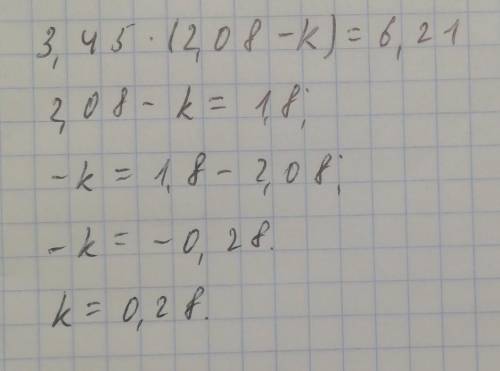 3,45 · (2,08 - k) = 6,21
2,08 - k = 1,8;
-k = 1,8 - 2,08;
-k = -0,28.
k = 0,28.